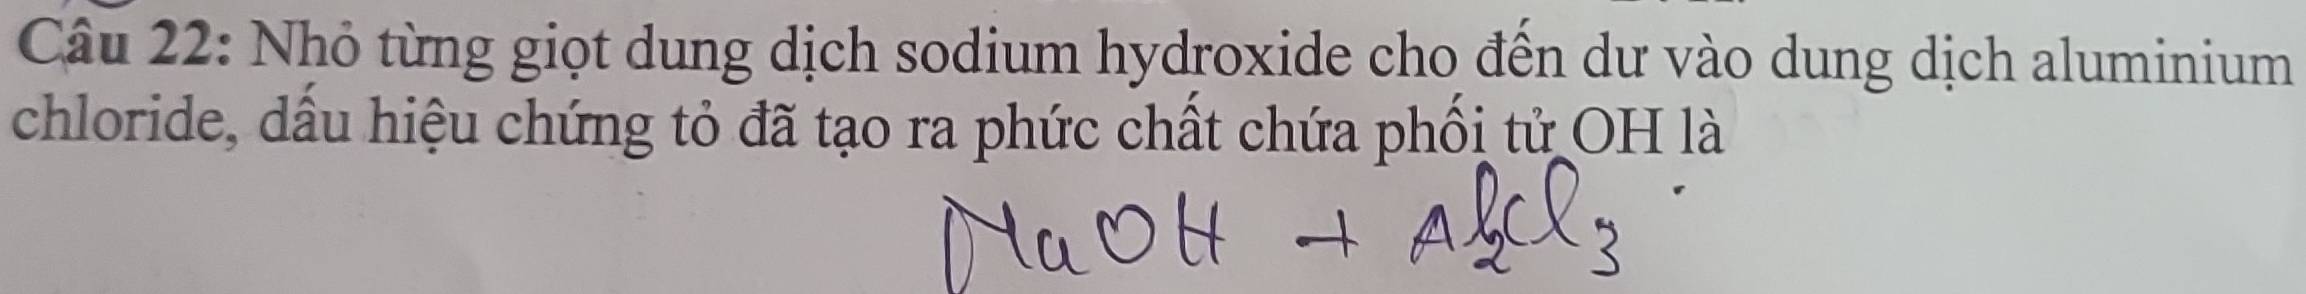 Câu 22: Nhỏ từng giọt dung dịch sodium hydroxide cho đến dư vào dung dịch aluminium
chloride, dấu hiệu chứng tỏ đã tạo ra phức chất chứa phối tử OH là
NaOH + Al₂Cl₃